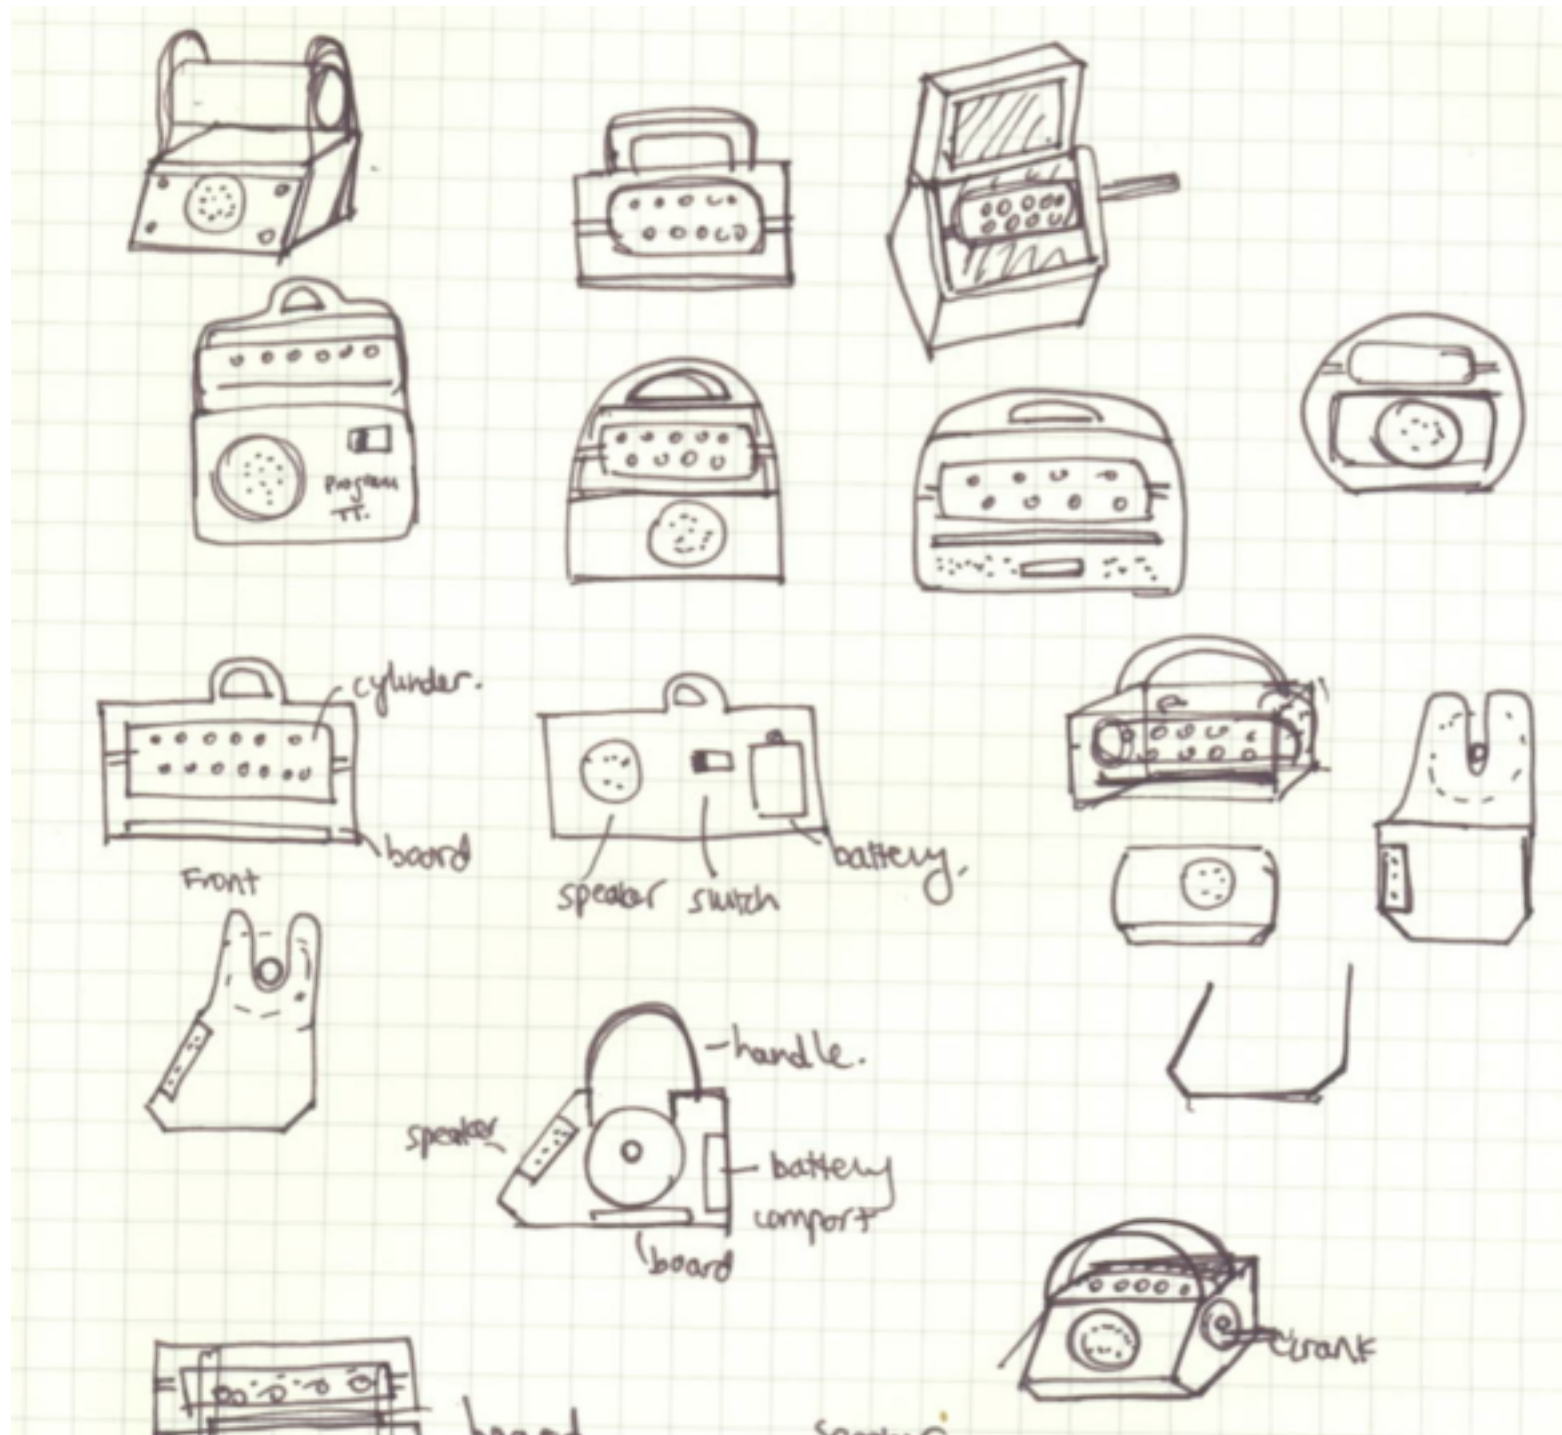 Program
TT.
cylinder.
board
Front
speaker
switch
battery.
handle.
speaker
battery
compart
board
crank
board
speaker